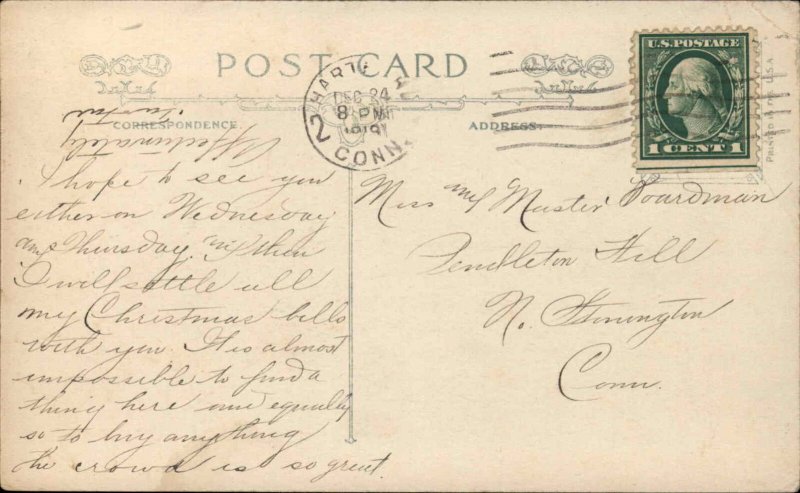 POST CARD
CORRESPONDENCE
ADDRESS
HARTF
DEC 24
8 PM
2
CONN.
U.S. POSTAGE
1 CENT 1
I hope to see you
either on Wednesday
and Thursday, and then
I will settle all
my Christmas bills
with you. It is almost
impossible to find a
thing here and equally
so to buy anything
the crowd is so great.
Affectionately
Miss and Master Boardman
Pendleton Hill
No. Stonington
Conn.